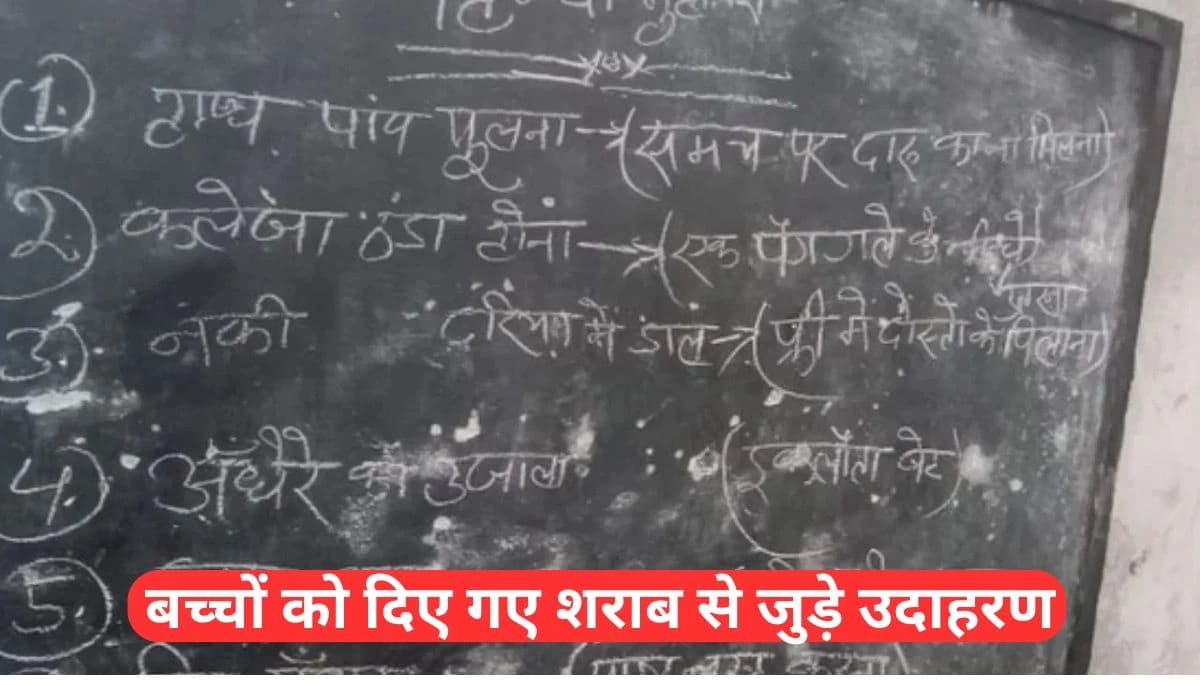 1. हाथ पांव फूलना → (समय पर दारू का ना मिलना)
2. कलेजा ठंडा होना → (एक पेग गले के नीचे
3. नेकी दरिया में डाल → (फ्री में दोस्तो को पिलाना)
4. अँधेरे का उजाला (इकलौता बेट)
5.
बच्चों को दिए गए शराब से जुड़े उदाहरण